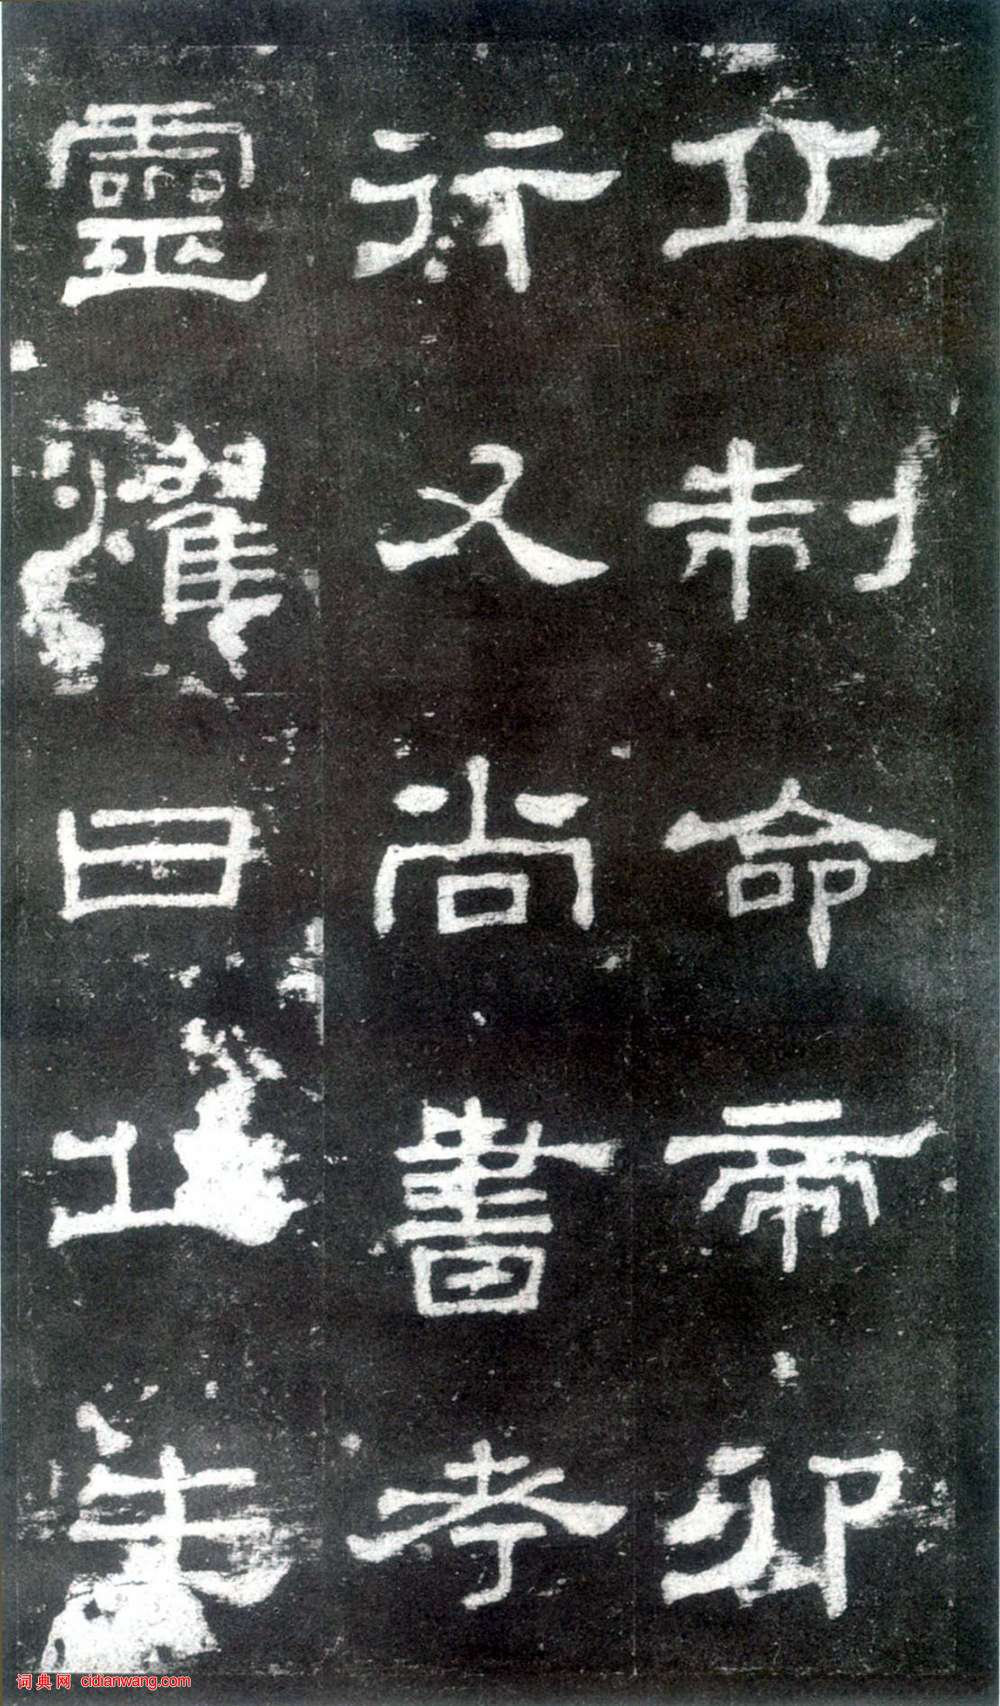 立制命帝卯
行又尚書考
靈燿曰丘生
词典网 cidianwang.com